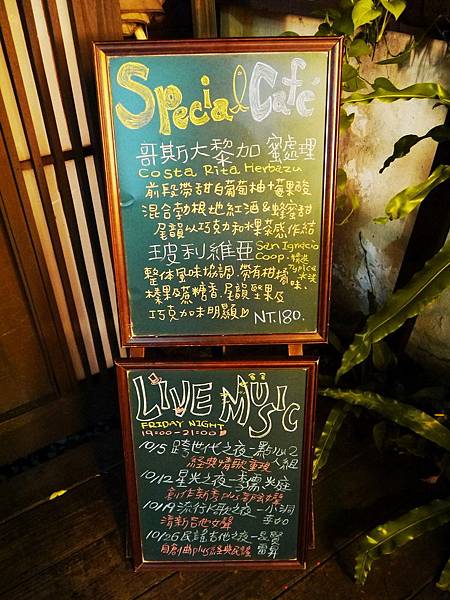 Special Café
哥斯大黎加 蜜處理
Costa Rita Herbazu
前段帶甜白葡萄柚檬果酸
混合勃根地紅酒&蜂蜜甜
尾韻以巧克力和水果茶感作結
玻利維亞 San Ignacio
Coop. Typica 水洗
整體風味協調.帶有柑橘味.
榛果及蔗糖香.尾韻堅果及
巧克力味明顯 NT.180.
LIVE MUSIC
FRIDAY NIGHT
19:00-21:00
10/5 跨世代之夜-點心2人組
經典情歌重現
10/12 星光之夜-李
創作新秀plus
10/19 流行K歌之夜-小洞
清新吉他女聲
10/26 民謠吉他之夜-
自創曲plus經典民謠